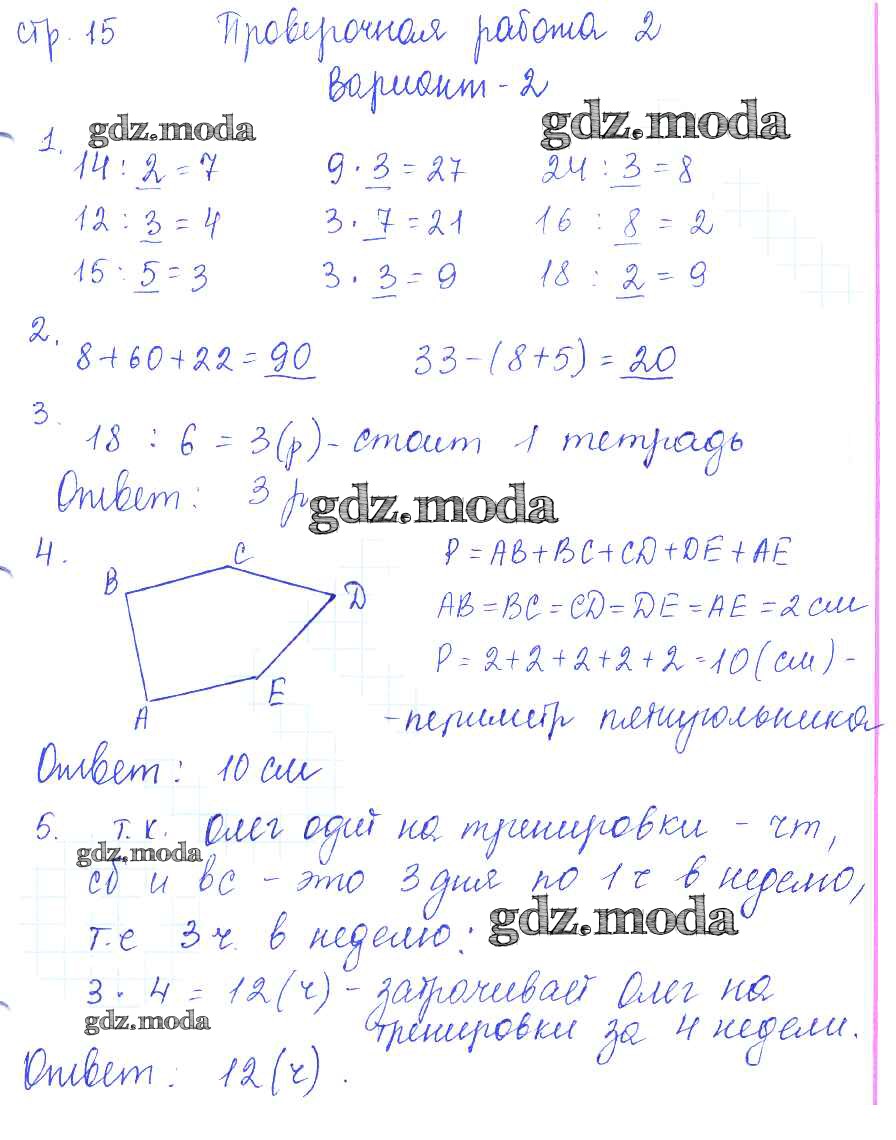 стр. 15 Проверочная работа 2
Вариант - 2
gdz.moda gdz.moda
1.
14 : 2 = 7 9 · 3 = 27 24 : 3 = 8
12 : 3 = 4 3 · 7 = 21 16 : 8 = 2
15 : 5 = 3 3 · 3 = 9 18 : 2 = 9
2.
8+60+22=90 33-(8+5)=20
3.
18 : 6 = 3(р) - стоит 1 тетрадь
Ответ: 3 р
gdz.moda
4.
B C D E A
P = AB+BC+CD+DE+AE
AB=BC=CD=DE=AE=2 см
P = 2+2+2+2+2=10(см) -
-периметр пятиугольника
Ответ: 10 см
5. т.к. Олег одит на тренировки - чт,
gdz.moda
сб и вс - это 3 дня по 1 ч в неделю,
gdz.moda
т.е 3 ч. в неделю:
3 · 4 = 12(ч) - затрачивает Олег на
gdz.moda
тренировки за 4 недели.
Ответ: 12(ч).